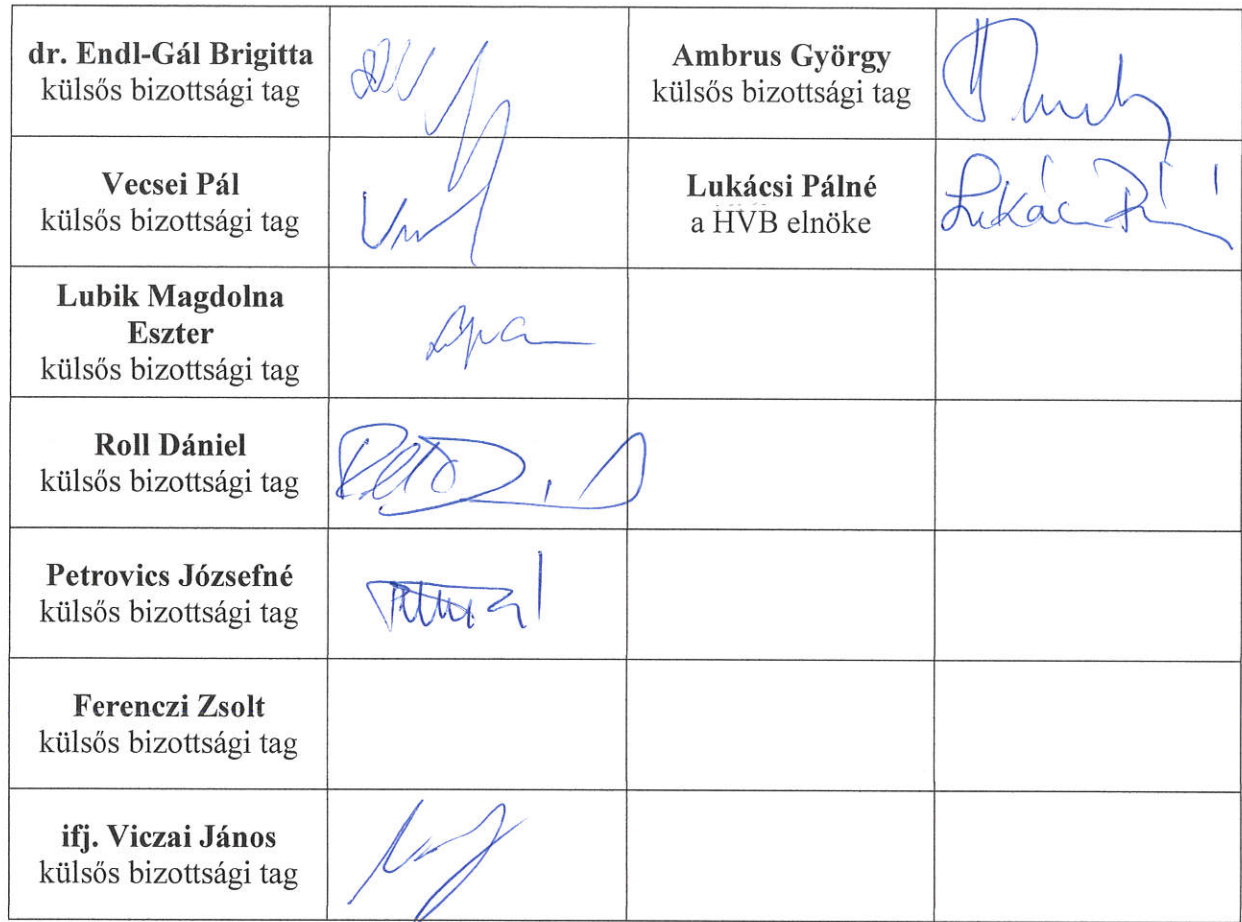 dr. Endl-Gál Brigitta
külsős bizottsági tag
Ambrus György
külsős bizottsági tag
Vecsei Pál
külsős bizottsági tag
Lukácsi Pálné
a HVB elnöke
Lubik Magdolna
Eszter
külsős bizottsági tag
Roll Dániel
külsős bizottsági tag
Petrovics Józsefné
külsős bizottsági tag
Ferenczi Zsolt
külsős bizottsági tag
ifj. Viczai János
külsős bizottsági tag